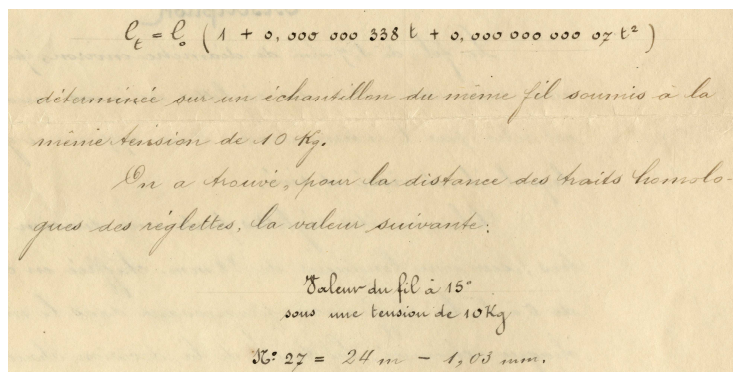 ℓt = ℓo ( 1 + 0,000 000 338 t + 0,000 000 000 07 t² )
déterminée sur un échantillon du même fil soumis à la
même tension de 10 Kg.
On a trouvé, pour la distance des traits homolo-
gues des réglettes, la valeur suivante:
Valeur du fil à 15°
sous une tension de 10 Kg
No: 27 = 24 m - 1,03 mm.